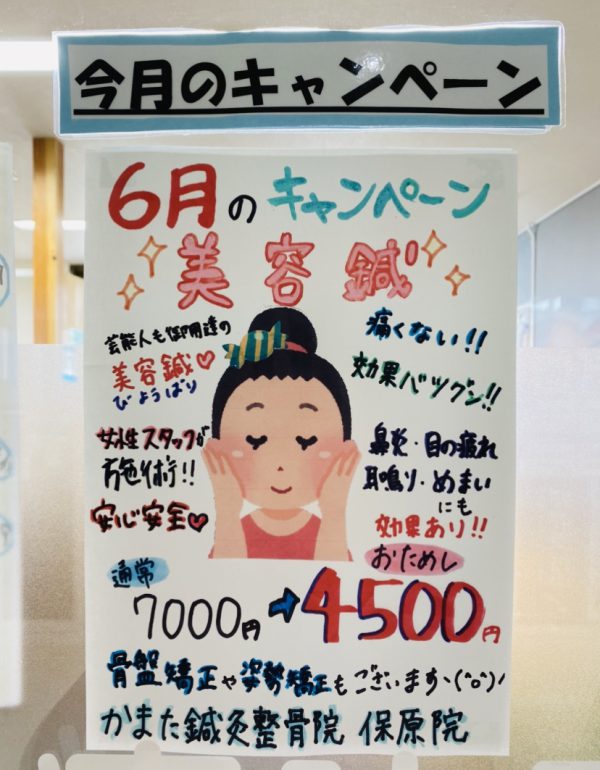 今月のキャンペーン
6月のキャンペーン
美容鍼
芸能人も御用達の
美容鍼♡
びようばり
痛くない!!
効果バツグン!!
女性スタッフが
施術!!
安心安全♥
鼻炎・目の疲れ
耳鳴り・めまい
にも
効果あり!!
おためし
通常
7000円➡4500円
骨盤矯正や姿勢矯正もございますヽ(^o^)ノ
かまた鍼灸整骨院 保原院